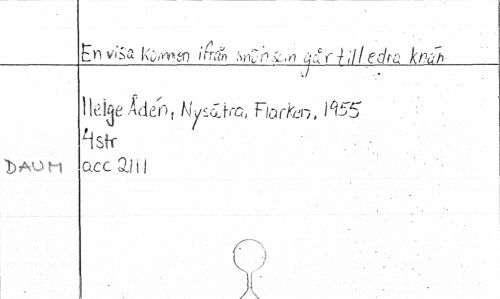 En visa kommen ifrån snön som går till edra knän
Helge Ådén, Nysätra, Flarken, 1955
4str
DAUM acc 2111